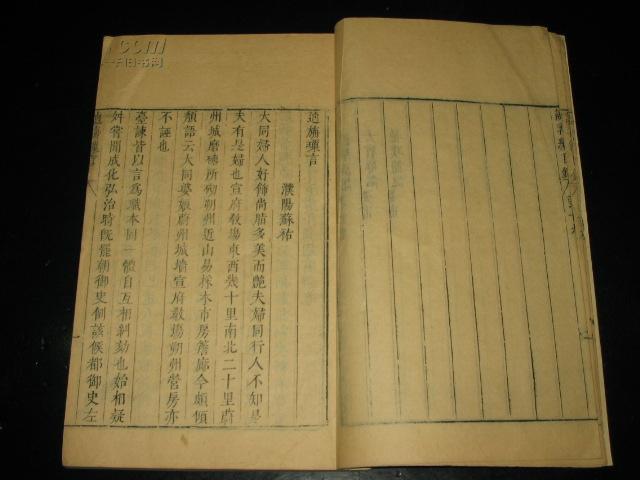 逌旃璅言
濮陽蘇祐
大同婦人好飾尚脂多美而艷夫婦同行人不知是
夫有是婦也宣府敎塲東西幾十里南北二十里蔚
州城磨磚所砌朔州近山易採木市房簷廊今頗傾
頽語云大同婆娘蔚州城墻宣府敎塲朔州營房亦
不誣也
臺諫皆以言爲職本同一體自互相糾劾也始相疑
舛嘗聞成化弘治時旣罷朝御史側該候都御史左